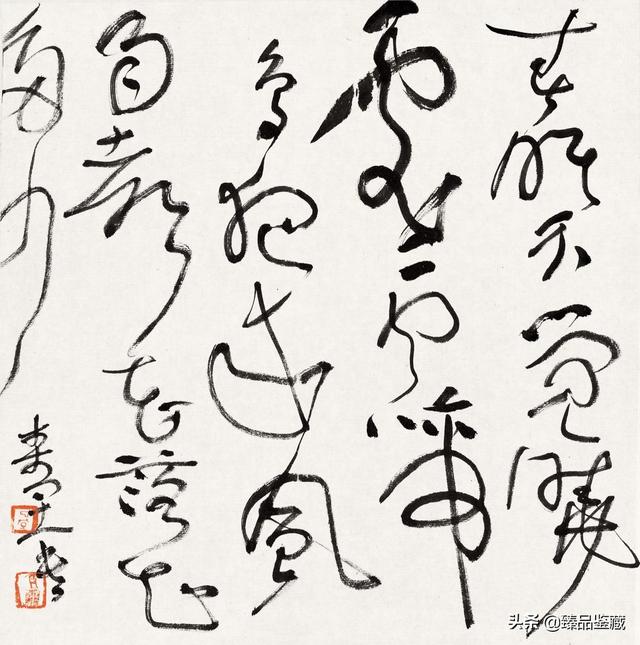 春眠不覺曉
處處聞啼
鳥夜來風
雨聲花落知
多少
头条 @臻品鉴藏